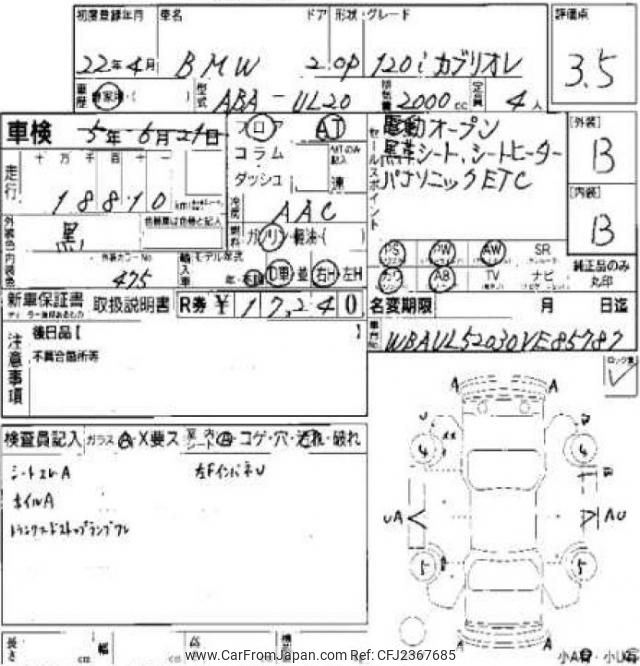 初度登録年月 車名 ドア 形状・グレード 評価点
22年4月 BMW 2 OP 120i カブリオレ 3.5
車歴 自家用・( ) 型式 ABA-UL20 排気量 2000cc 定員 4人
車検 5年6月21日 フロア AT
コラム
ダッシュ
走行 十 万 千 百 十 一
18810 km
冷房 AAC
燃料 ガソリン・軽油・( )
セールスポイント
電動オープン
黒革シート、シートヒーター
パナソニックETC
[外装] B
[内装] B
外装色 黒 色替車は色替と記入
内装色 外装カラーNo 475
輸入車 モデル年式 年・ D車 並 右H 左H
PS PW AW SR
カワ AB TV ナビ
純正品のみ丸印
新車保証書 取扱説明書 R券 ¥ 17,240
名変期限 月 日迄
車台No WBAUL52030VE85787
注意事項
後日品【 】
不具合箇所等
検査員記入 ガラス A・X要ス 室内シート コゲ・穴・汚れ・破れ
シートスレA 左FインパネU
ホイルA
トランクスードストップランプワレ
A A
U
4 4
UA AU
5 5
A A
長さ cm 幅 cm 高
小A 小U
www.CarFromJapan.com Ref: CFJ2367685